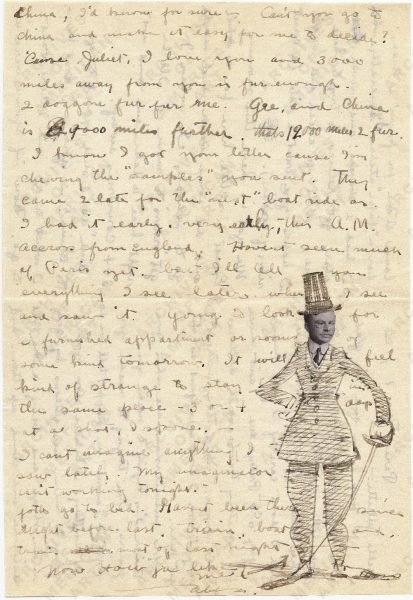 China, I'd know for sure. Can't you go to
China and make it easy for me to decide?
'Cause Juliet, I love you and 3000
miles away from you is fur enough.
2 doggone fur fur me. Gee, and China
is 9000 miles further. thats 12,000 miles 2 fur.
I know I got your letter cause I'm
chewing the "samples" you sent. They
came 2 late for the "nest" boat ride as
I had it early, very early, this A.M.
across from England. Haven't seen much
of Paris yet. but I'll tell you
everything I see later when I see
and saw it. Going to look for
a furnished appartment or rooms of
some kind tomorrow. It will feel
kind of strange to stay in
the same place - 3 or 4 days
at a shot, I s'pose.
I can't imagine anything I
saw lately. My imaginator
isn't working tonight.
gotta go to bed. Haven't been there since
night before last. train, boat and
train most of last night.
Now How ja like
me?